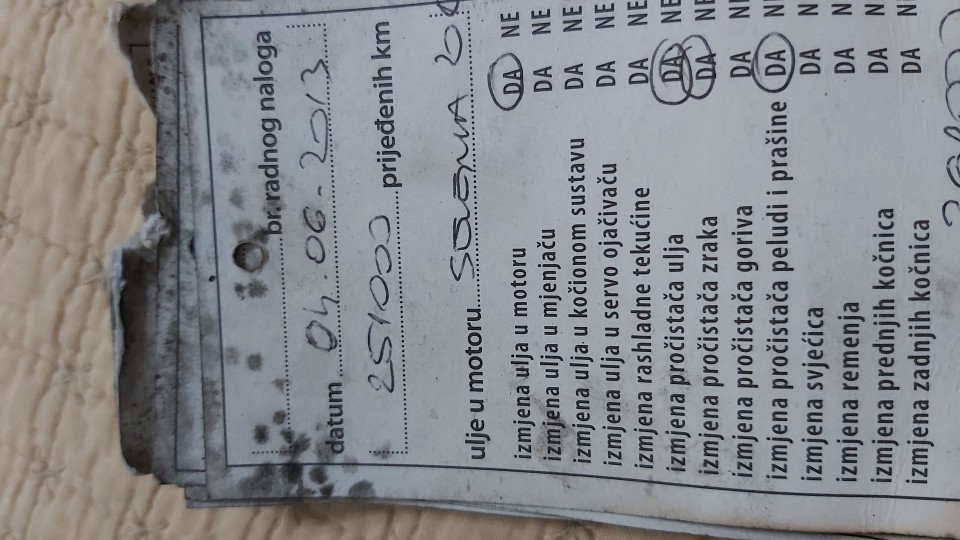 br. radnog naloga
datum 04.06.2013
251000 prijeđenih km
ulje u motoru
izmjena ulja u motoru DA NE
izmjena ulja u mjenjaču DA NE
izmjena ulja u kočionom sustavu DA NE
izmjena ulja u servo ojačivaču DA NE
izmjena rashladne tekućine DA NE
izmjena pročistača ulja DA NE
izmjena pročistača zraka DA NE
izmjena pročistača goriva DA
izmjena pročistača peludi i prašine DA
izmjena svjećica DA
izmjena remenja DA
izmjena prednjih kočnica DA
izmjena zadnjih kočnica DA